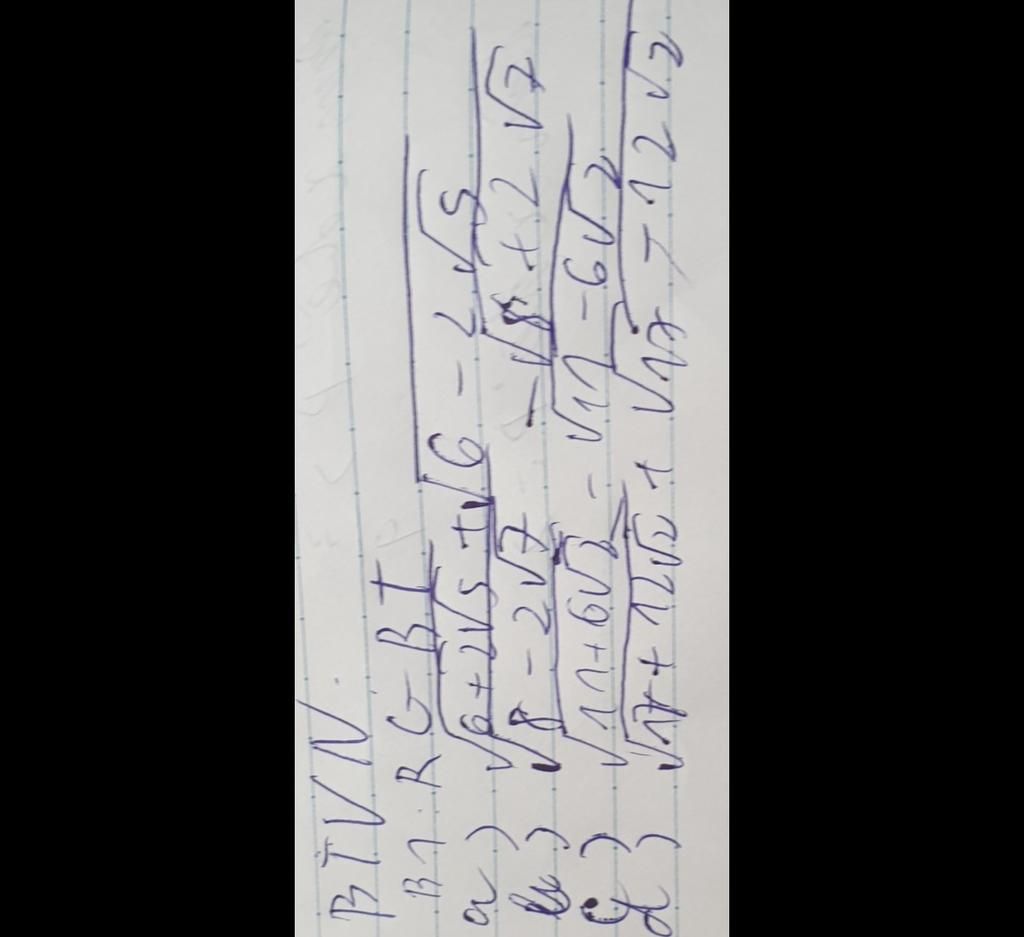 BTVN.
B1. RGBT
a) √(6+2√5) + √(6-2√5)
b) √(8-2√7) - √(8+2√7)
c) √(11+6√2) - √(11-6√2)
d) √(17+12√2) + √(17-12√2)